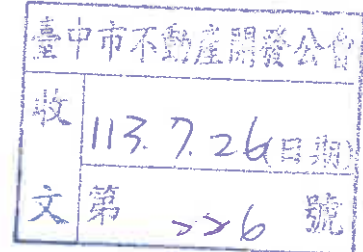 臺中市不動產開發公會
收文
113.7.26(日期)
第 226 號